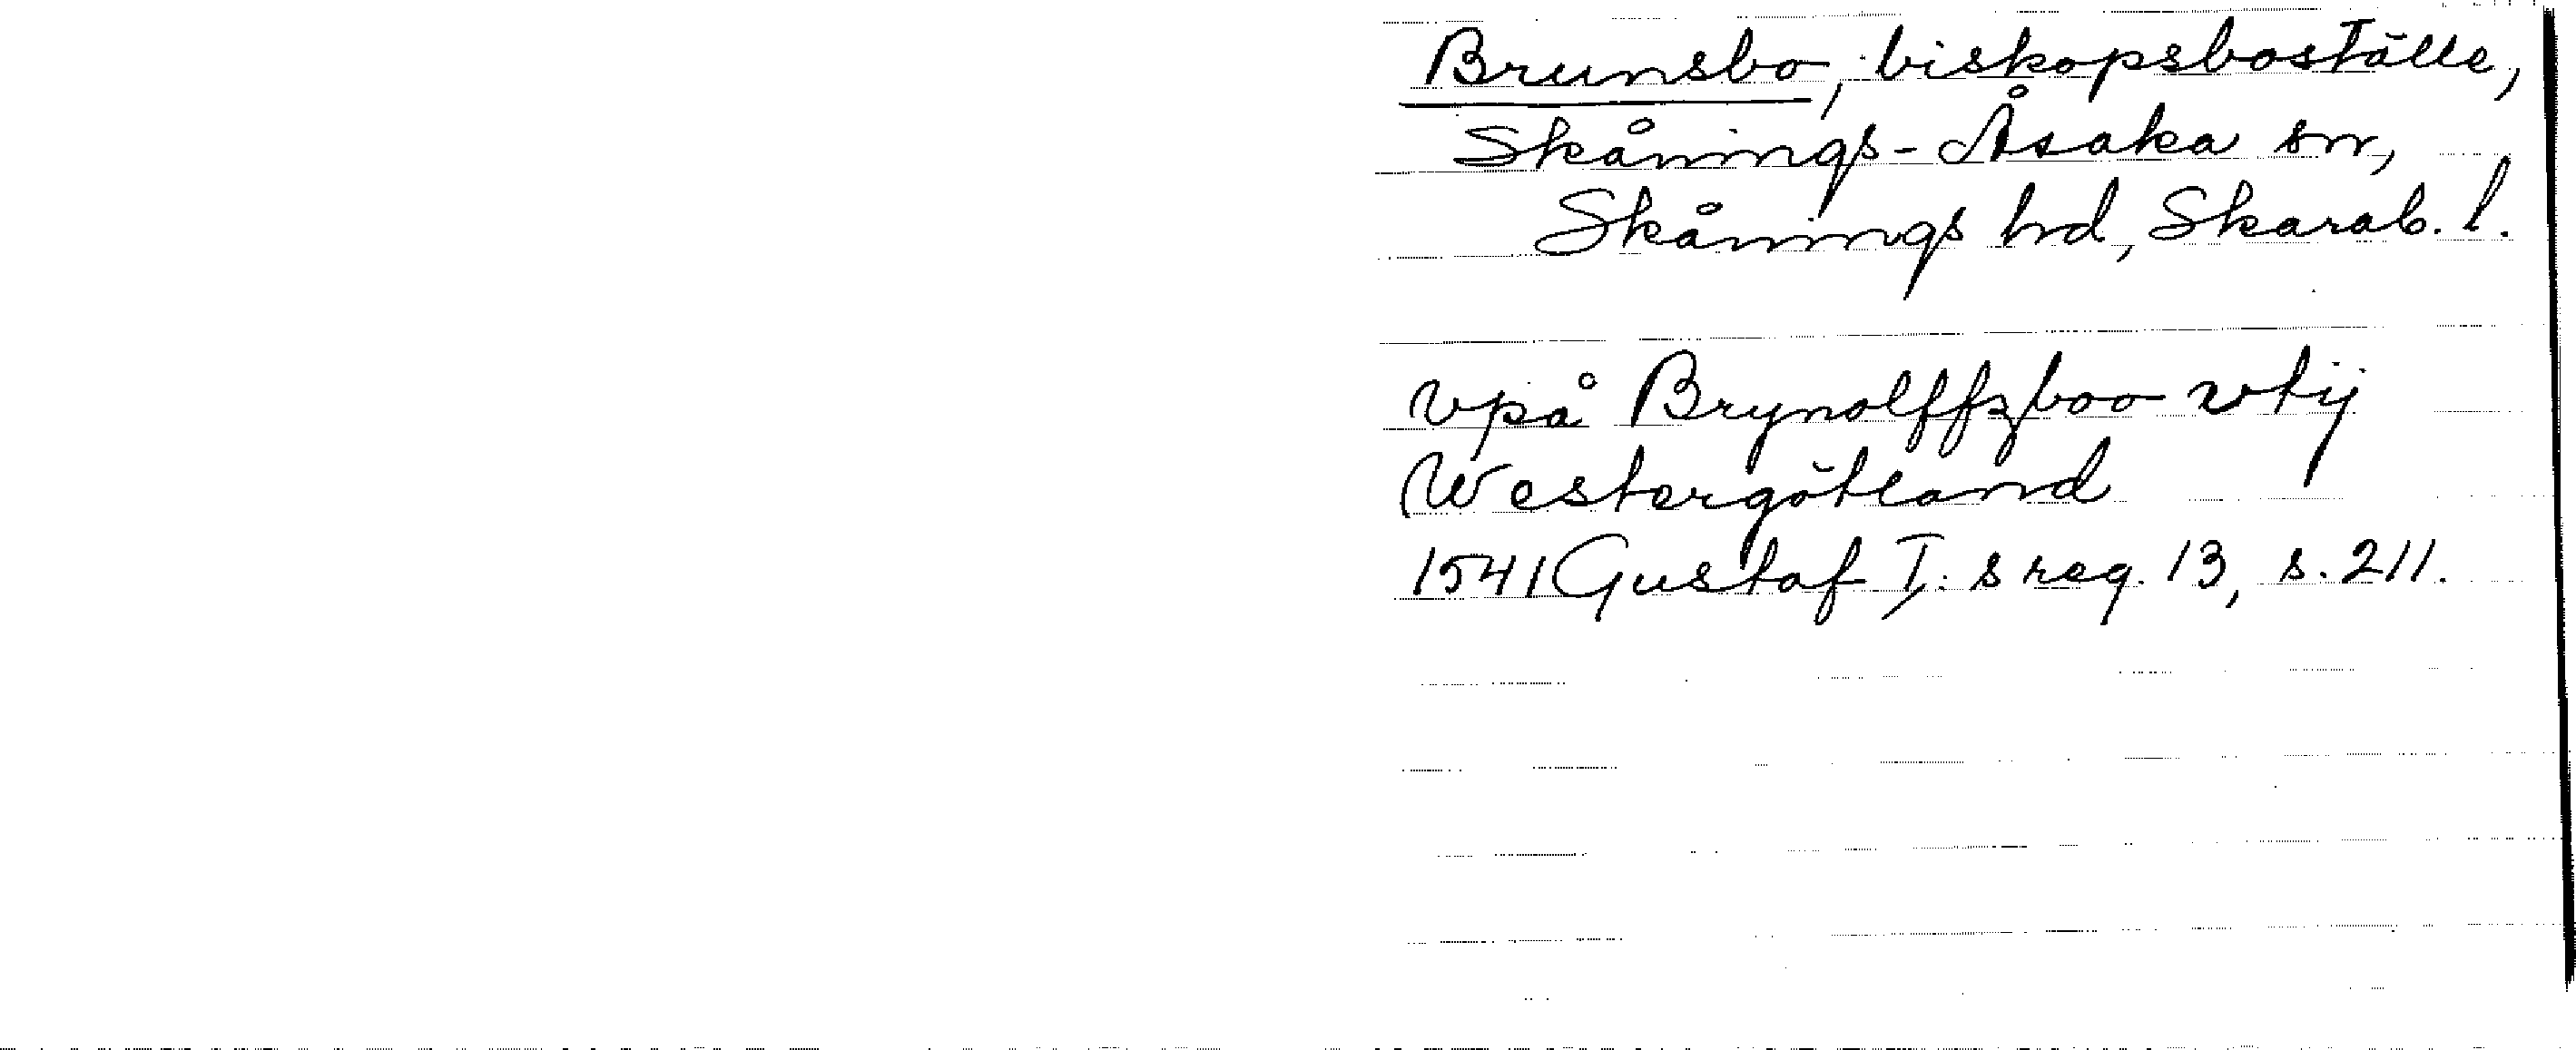 Brunsbo, biskopsboställe,
Skånings-Åsaka sn,
Skånings hd, Skarab. l.
vpå Brynolffzboo vtij
Westergötland
1541 Gustaf I:s reg. 13, s. 211.